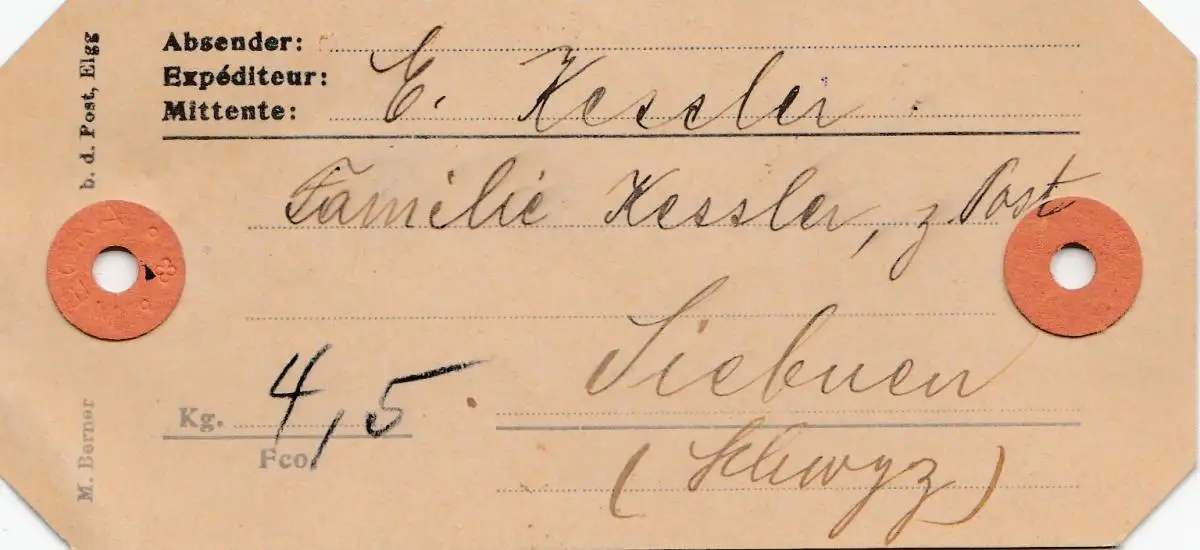 Absender:
Expéditeur:
Mittente:
E. Kessler.
Familie Kessler, z. Post
Siebnen
(Schwyz)
Kg. 4,5
Fco.
M. Berner b. d. Post, Elgg